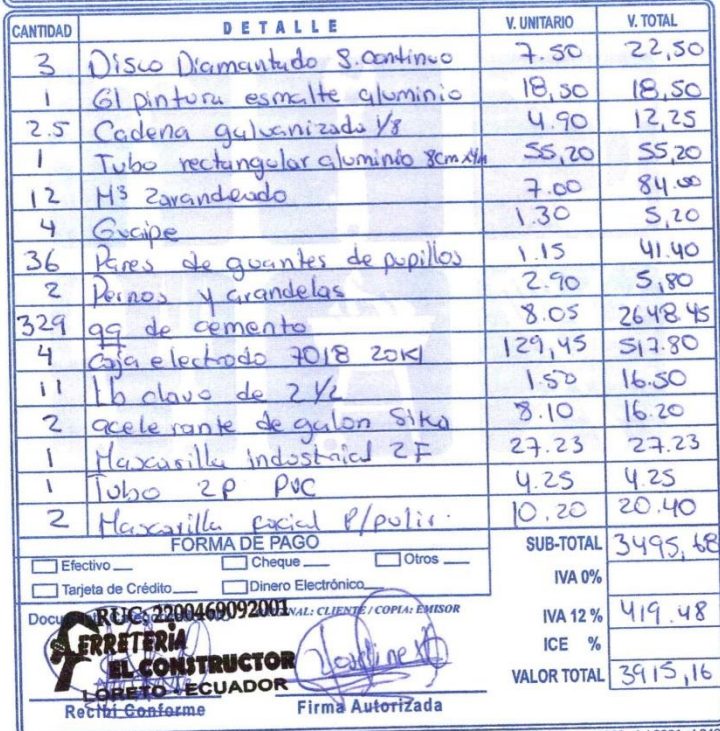 CANTIDAD DETALLE V. UNITARIO V. TOTAL
3 Disco Diamantado S. continuo 7.50 22,50
1 Gl pintura esmalte aluminio 18,50 18,50
2.5 Cadena galvanizada 1/8 4.90 12,25
1 Tubo rectangular aluminio 8cm x4m 55,20 55,20
12 M3 Zarandeado 7.00 84.00
4 Guaipe 1.30 5,20
36 Pares de guantes de pupillos 1.15 41.40
2 Pernos y arandelas 2.90 5,80
329 qq de cemento 8.05 2648.45
4 Caja electrodo 7018 20KI 129,45 517.80
11 Lb clavo de 2 1/2 1.50 16.50
2 acelerante de galon Sika 8.10 16.20
1 Mascarilla industrial 2F 27.23 27.23
1 Tubo 2P PVC 4.25 4.25
2 Mascarilla facial P/pulir. 10.20 20.40
FORMA DE PAGO
Efectivo Cheque Otros
Tarjeta de Crédito Dinero Electrónico
SUB-TOTAL 3495,68
IVA 0%
IVA 12 % 419.48
ICE %
VALOR TOTAL 3915,16
CLIENTE / COPIA: EMISOR
RUC: 2200469092001
FERRETERÍA
EL CONSTRUCTOR
LORETO - ECUADOR
Recibí Conforme Firma Autorizada